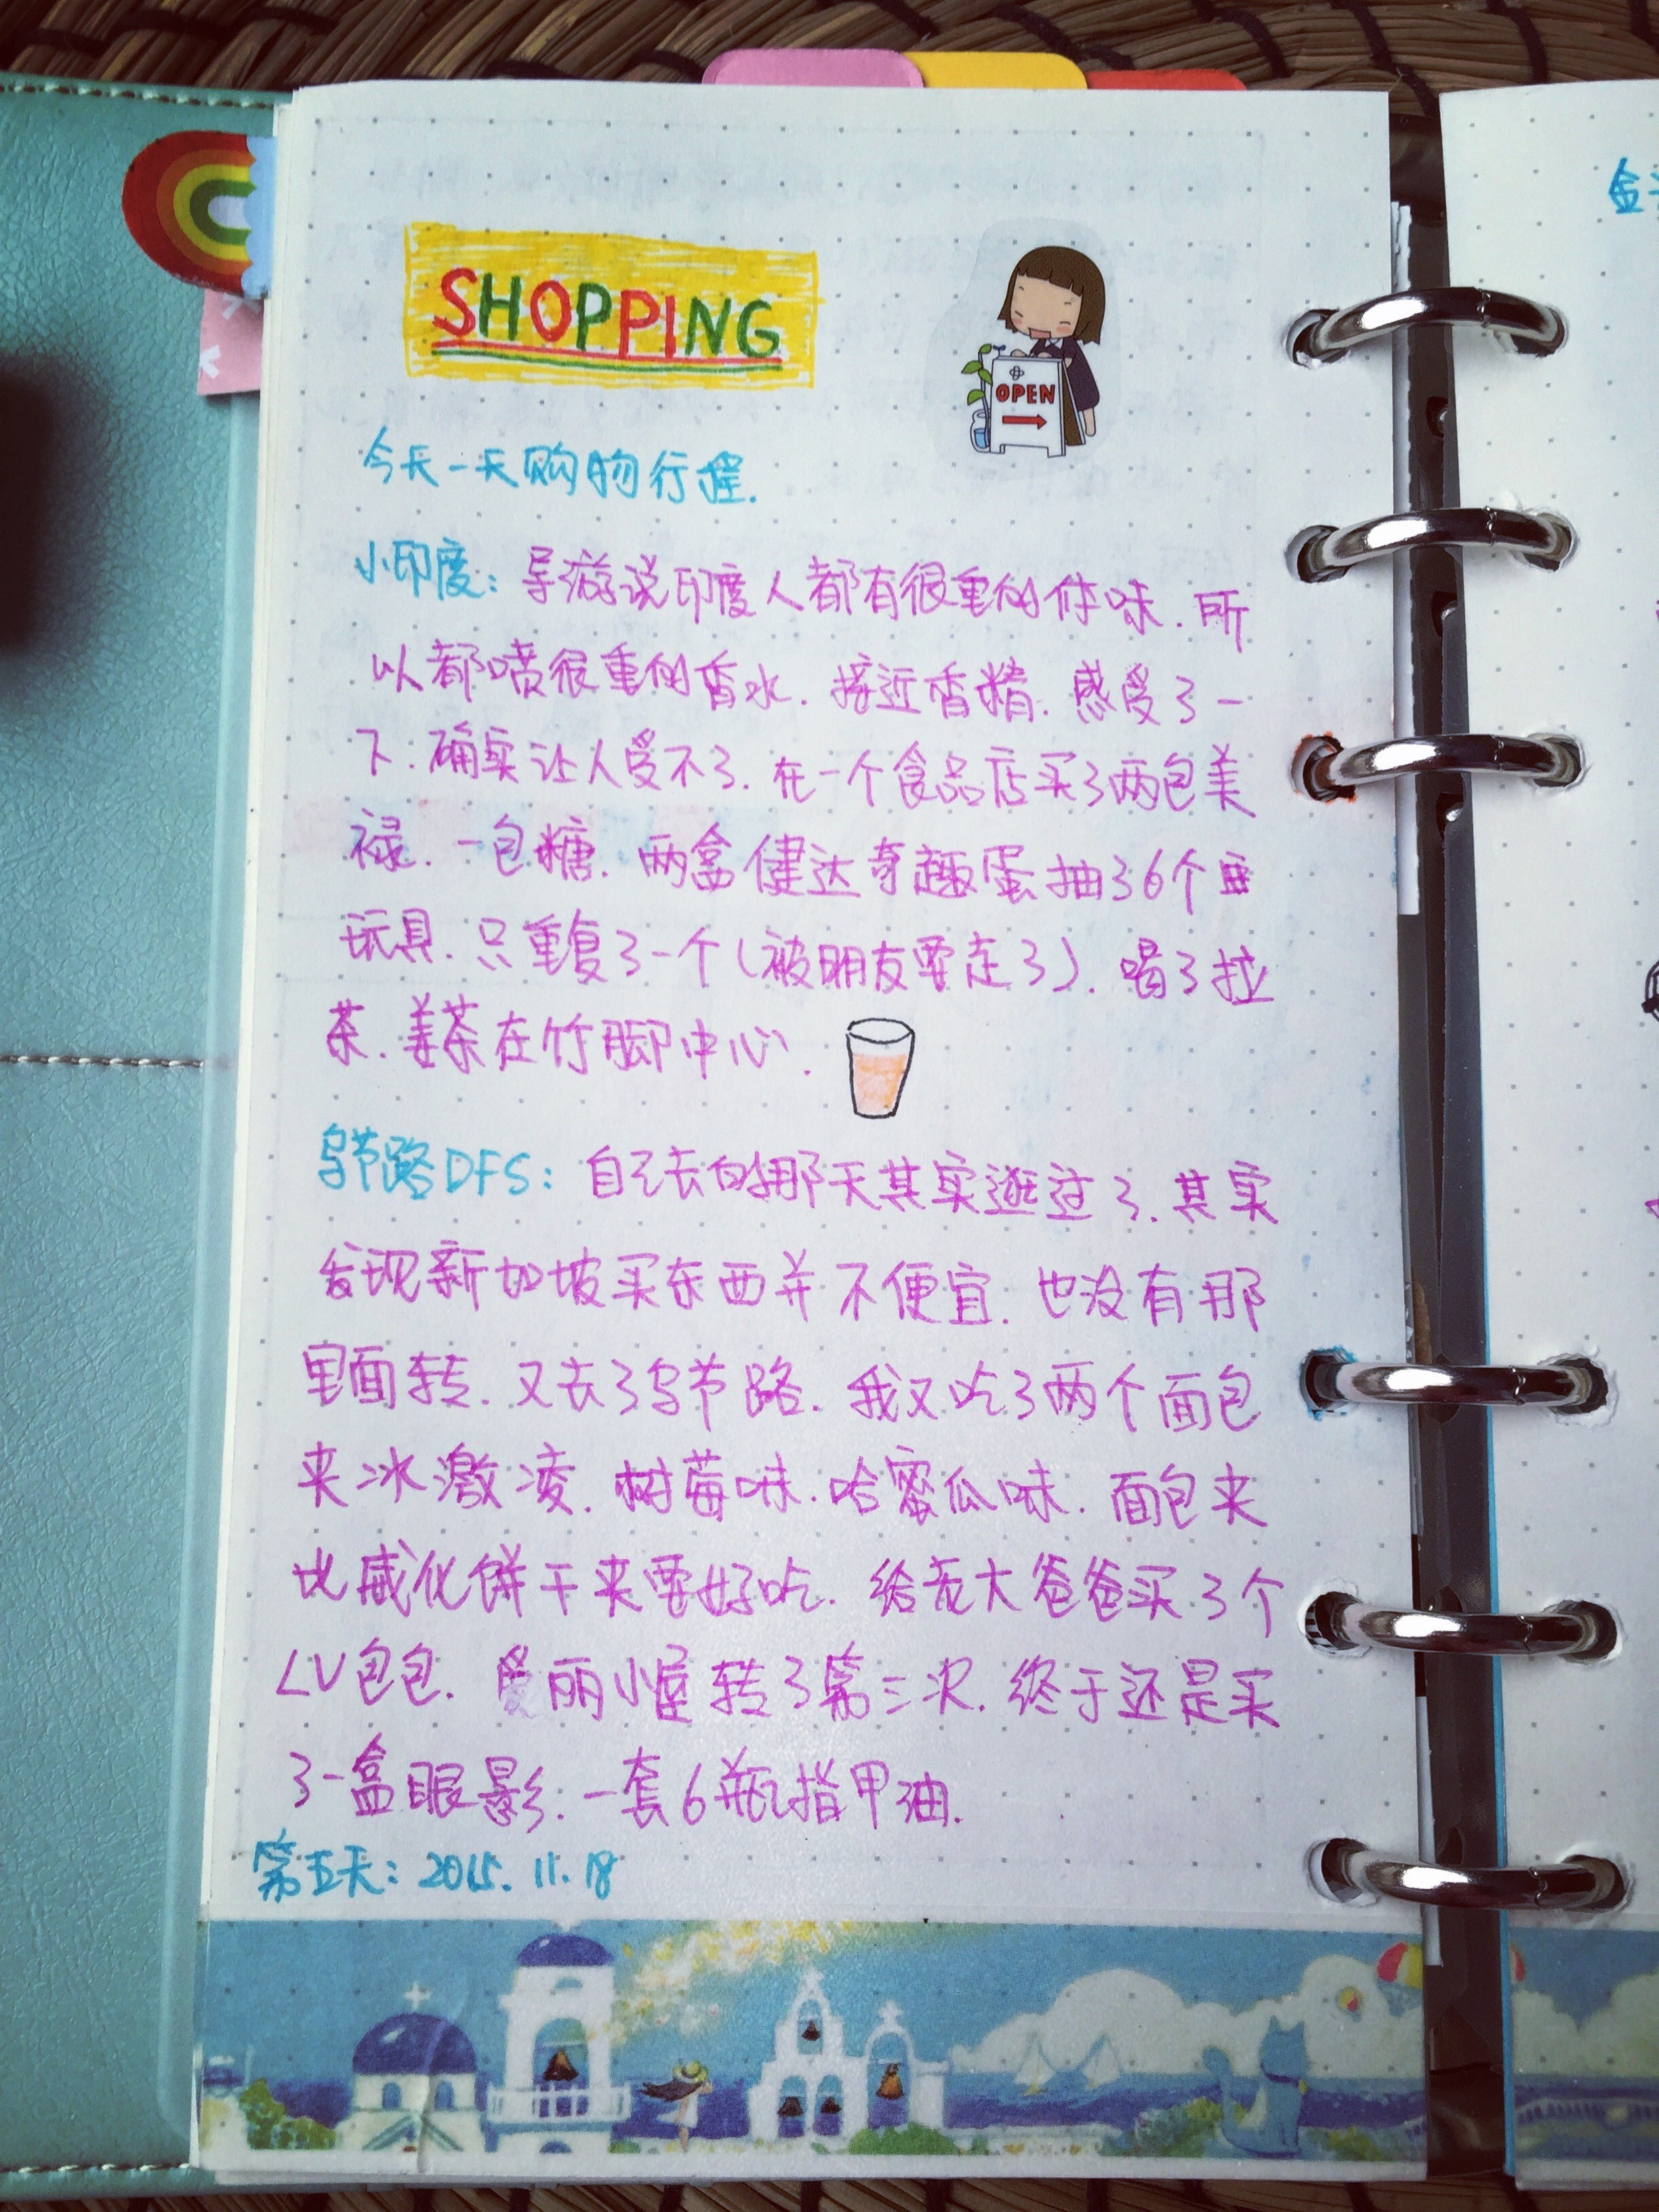 SHOPPING
OPEN
今天一天购物行程.
小印度：导游说印度人都有很重的体味.所
以都喷很重的香水.接近香精.感受了一
下.确实让人受不了.在一个食品店买了两包美
禄.一包糖.两盒健达奇趣蛋抽了6个
玩具.只重复了一个(被朋友要走了).喝了拉
茶.姜茶在竹脚中心.
乌节路DFS：自己去的那天其实逛过了.其实
发现新加坡买东西并不便宜.也没有那
里面转.又去了乌节路.我又吃了两个面包
夹冰激凌.树莓味.哈蜜瓜味.面包夹
比威化饼干夹要好吃.给龙大爸爸买了个
LV包包.爱丽小屋转了第三次.终于还是买
了一盒眼影.一套6瓶指甲油.
第五天：2015.11.18
金